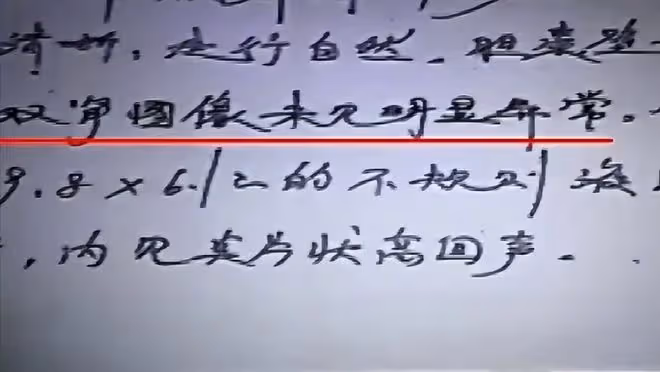 清晰,走行自然,胆囊壁
双肾图像未见明显异常。
9.8×6.1㎝的不规则液
,内见类片状高回声。